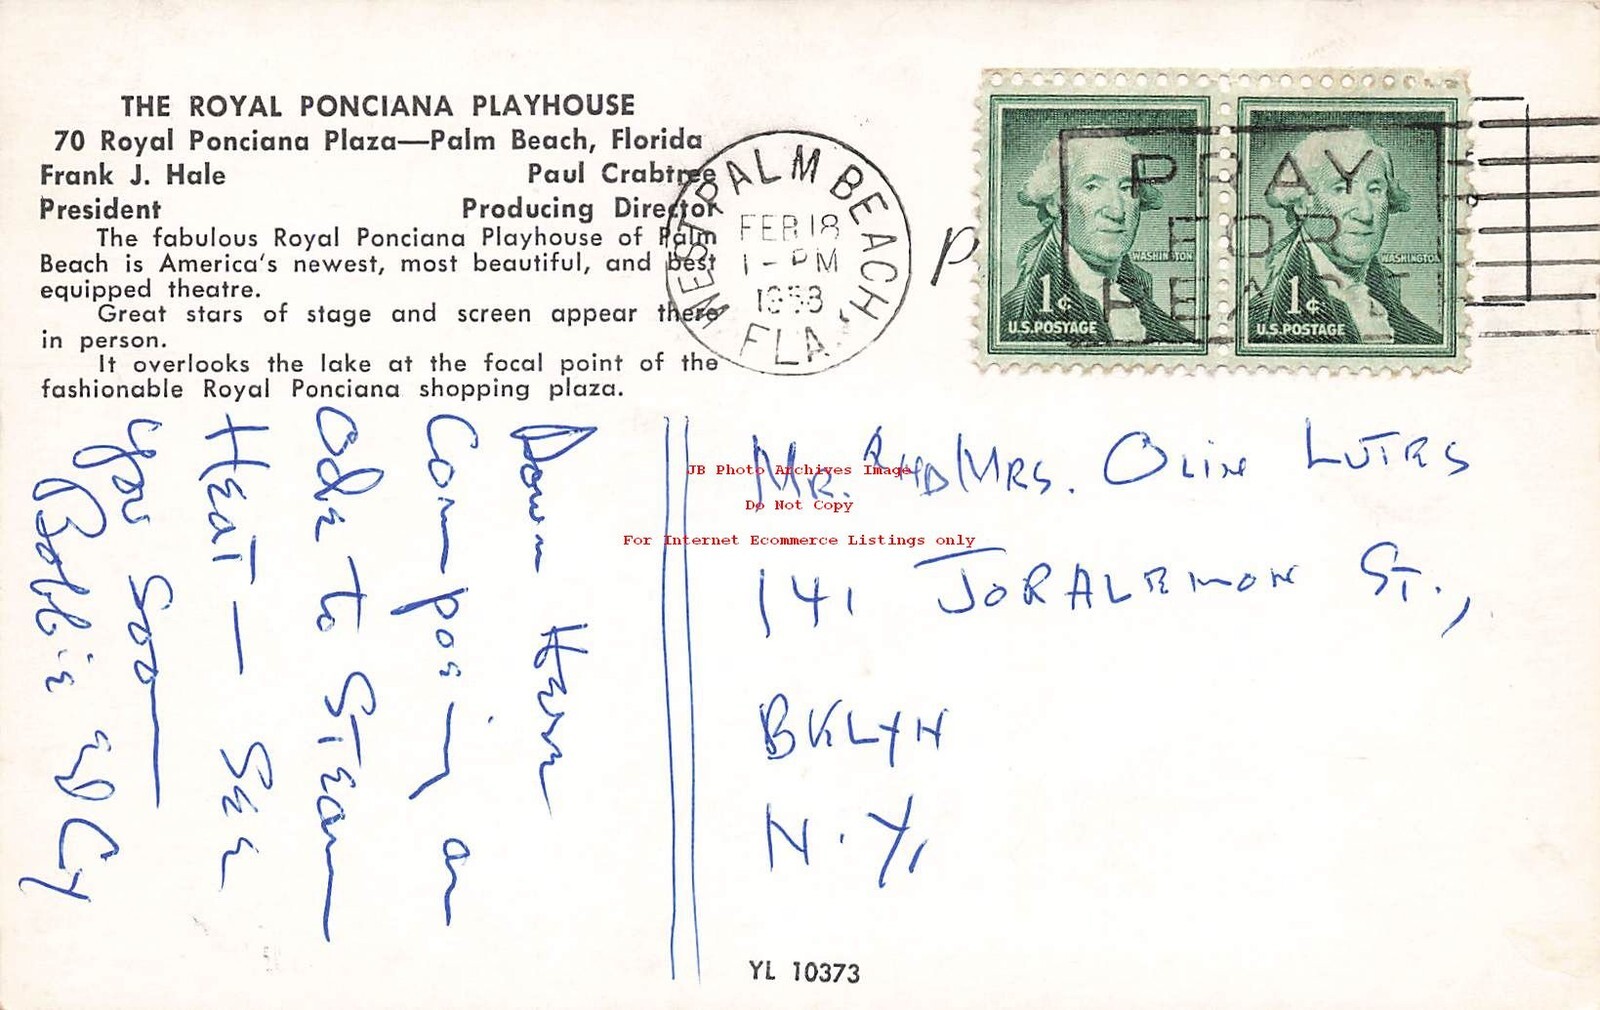 THE ROYAL PONCIANA PLAYHOUSE
70 Royal Ponciana Plaza—Palm Beach, Florida
Frank J. Hale Paul Crabtree
President Producing Director
The fabulous Royal Ponciana Playhouse of Palm
Beach is America's newest, most beautiful, and best
equipped theatre.
Great stars of stage and screen appear there
in person.
It overlooks the lake at the focal point of the
fashionable Royal Ponciana shopping plaza.
WEST PALM BEACH
FEB 18
1 - PM
1958
FLA.
PRAY
FOR
PEACE
WASHINGTON
1¢
U.S. POSTAGE
WASHINGTON
1¢
U.S. POSTAGE
Down Here
Composing an
Ode to Steam
Heat — See
you soon
Bobbie and Cy
Mr. and Mrs. Olin Lutes
141 Joralemon St.,
Bklyn
N.Y.
JB Photo Archives Image
Do Not Copy
For Internet Ecommerce Listings only
YL 10373